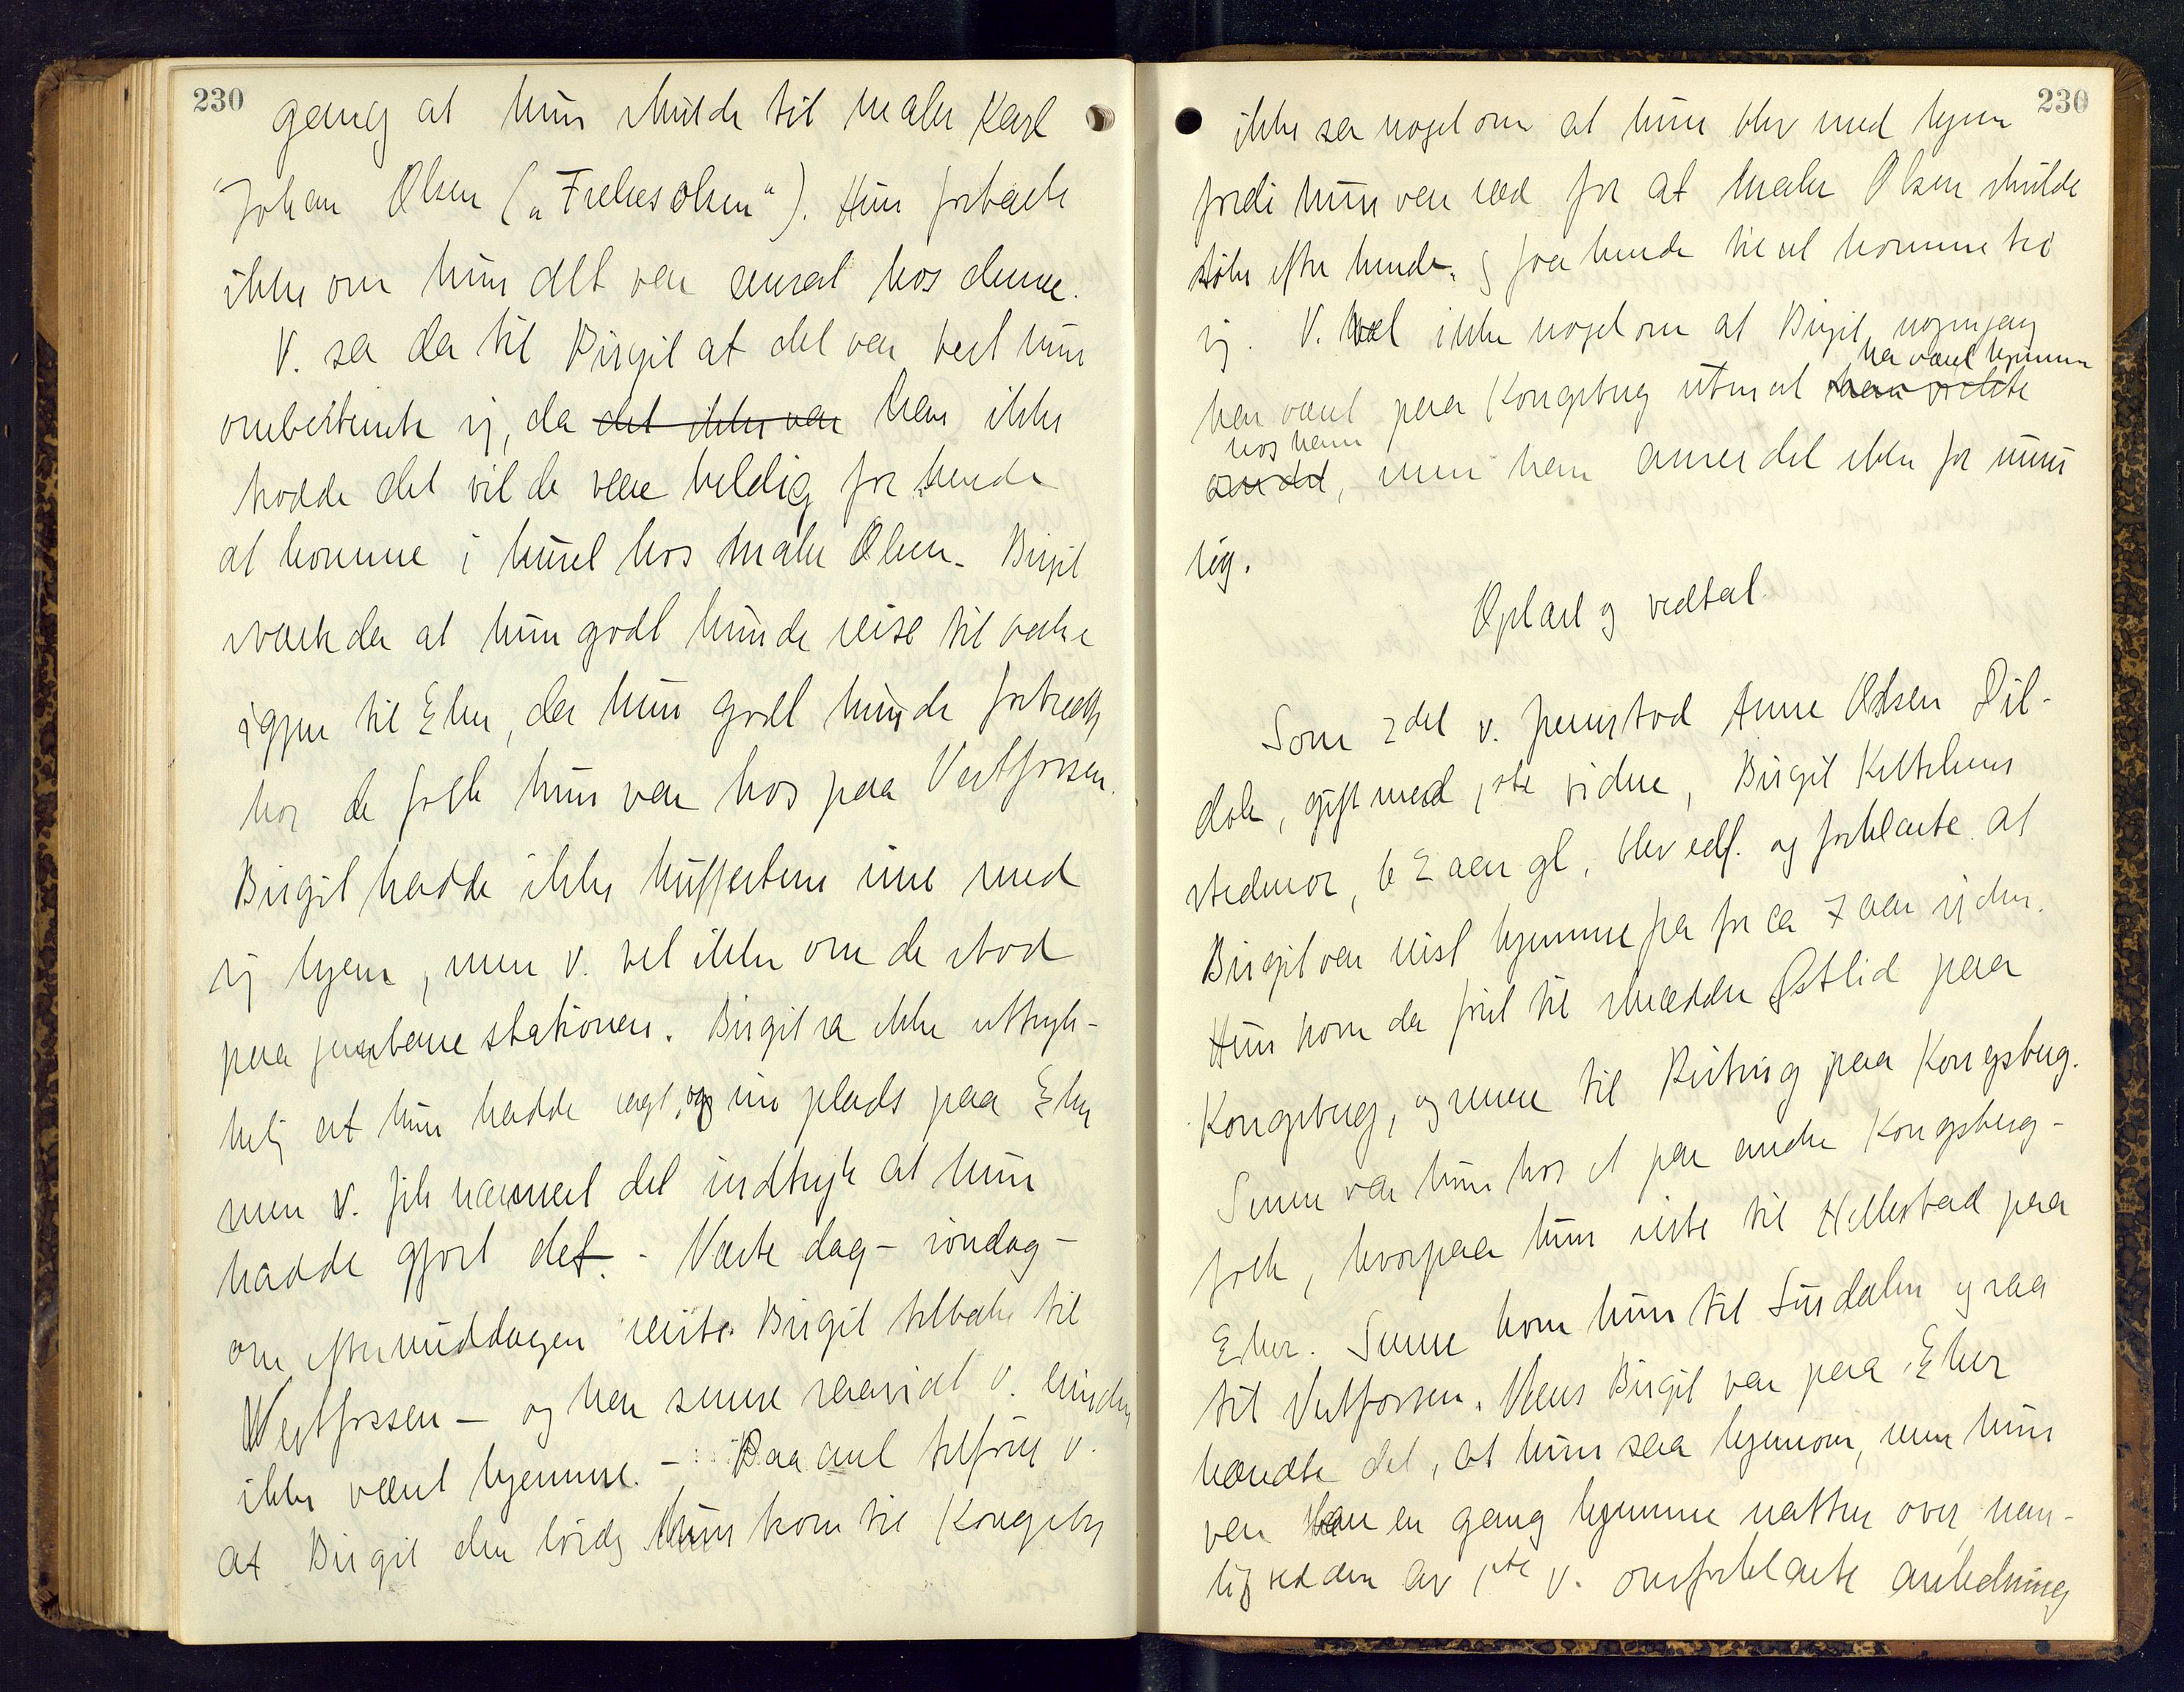 230
gang at hun skulde til maler Karl
Johan Olsen („Frelesolsen"). Hun fortalte
ikke om hun alt var ansat hos denne.
V. sa da til Birgit at det var best hun
ombestemte sig, da det ikke var han ikke
trodde det vilde være heldig for hende
at komme i huset hos maler Olsen. Birgit
svarte da at hun godt kunde reise tilbake
igjen til Eker, da hun godt kunde fortsætte
hos de folk hun var hos paa Vestfossen.
Birgit hadde ikke kuffertene sine med
sig hjem, men v. vet ikke om de stod
paa jernbanestationen. Birgit sa ikke uttryk-
kelig at hun hadde sagt op sin plads paa Eker
men v. fik nærmest det indtryk at hun
hadde gjort det. - Næste dag - søndag -
om eftermiddagen reiste Birgit tilbake til
Vestfossen - og har senere saavidt v. erindrer
ikke været hjemme. - Paa anl. tilføier v.
at Birgit den lørdag hun kom til Kongsberg
230
ikke sa noget om at hun blev med hjem
fordi hun var ræd for at maler Olsen skulde
søke efter hende og faa hende til at komme til
sig. V. vet ikke noget om at Birgit nogengang
har været hjemme
har været paa Kongsberg uten at han visste
hos ham
om det, men han anser det ikke for umu-
lig.
Oplæst og vedtat.
Som 2det v. fremstod Anne Olsen Dil-
dale, gift med 1ste vidne, Birgit Kittelsens
stedmor, 62 aar gl, blev edf. og forklarte at
Birgit var reist hjemme fra for ca 7 aar siden.
Hun kom da først til skrædder Østlid paa
Kongsberg, og senere til Reitvig paa Kongsberg.
Senere var hun hos et par andre Kongsberg-
folk, hvorpaa hun reiste til Hellestad paa
Eker. Senere kom hun til Surdalen og saa
til Vestfossen. Mens Birgit var paa Eker
hændte det, at hun saa hjemom, men hun
var kun en gang hjemme natten over, nem-
lig ved den av 1ste v. omforklarte anledning